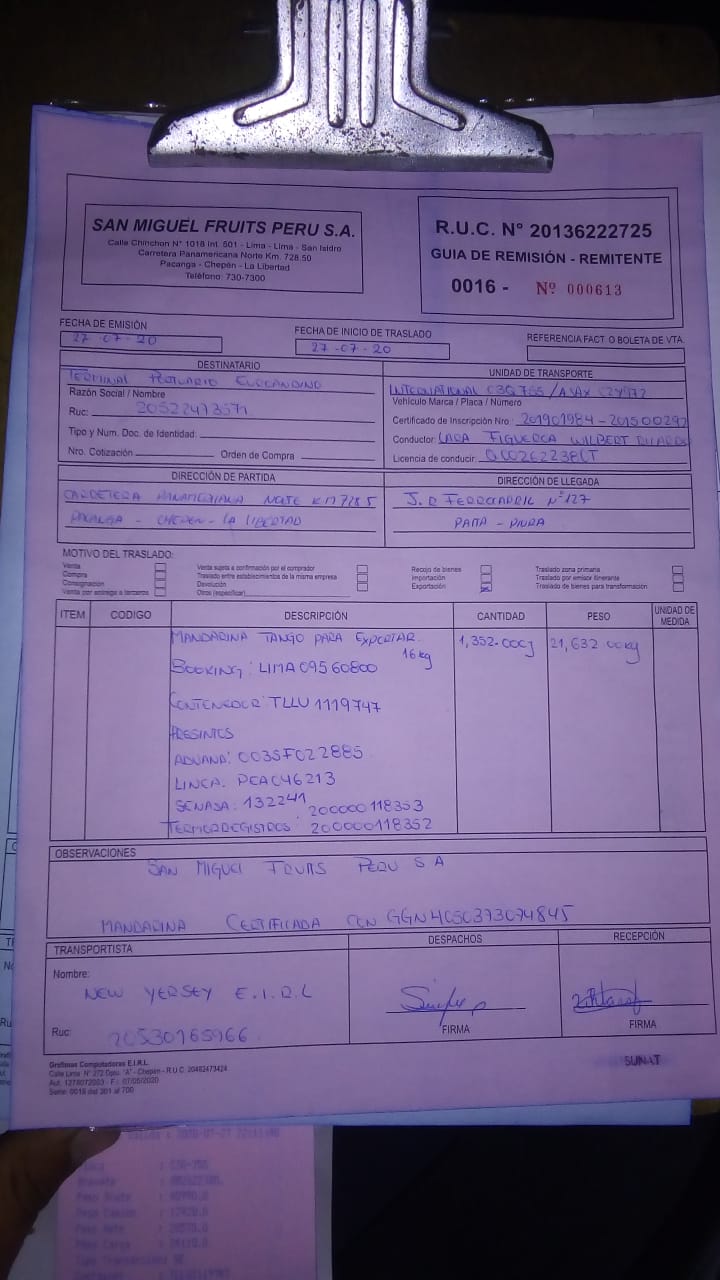 SAN MIGUEL FRUITS PERU S.A.
Calle Chinchon N° 1018 Int. 501 - Lima - Lima - San Isidro
Carretera Panamericana Norte Km. 728.50
Pacanga - Chepén - La Libertad
Teléfono: 730-7300
R.U.C. N° 20136222725
GUIA DE REMISIÓN - REMITENTE
0016 - Nº 000613
FECHA DE EMISIÓN
27-07-20
FECHA DE INICIO DE TRASLADO
27-07-20
REFERENCIA FACT O BOLETA DE VTA.
DESTINATARIO
TERMINAL PORTUARIO EUROANDINO
Razón Social / Nombre
Ruc: 20522473571
Tipo y Num. Doc. de Identidad:
Nro. Cotización Orden de Compra
UNIDAD DE TRANSPORTE
INTERNATIONAL C3Q755 /
Vehículo Marca / Placa / Número
Certificado de Inscripción Nro: 201901984 - 201500297
Conductor: LARA FIGUEROA WILBERT RICARDO
Licencia de conducir:
DIRECCIÓN DE PARTIDA
CARRETERA PANAMERICANA NORTE KM 728.5
PACANGA - CHEPEN - LA LIBERTAD
DIRECCIÓN DE LLEGADA
J.R FERROCARRIL N° 127
PAITA - PIURA
MOTIVO DEL TRASLADO:
Venta
Compra
Consignación
Venta por entrega a terceros
Venta sujeta a confirmación por el comprador
Traslado entre establecimientos de la misma empresa
Devolución
Otros (especificar)
Recojo de bienes
Importación
Exportación
Traslado zona primaria
Traslado por emisor itinerante
Traslado de bienes para transformación
ITEM CODIGO DESCRIPCIÓN CANTIDAD PESO UNIDAD DE MEDIDA
MANDARINA TANGO PARA EXPORTAR 1,352.00 21,632.00kg
16kg
BOOKING: LIMA09560800
CONTENEDOR: TLLU 1119747
PRESINTOS
ADUANA: 003SF022885
LINEA: PCAC46213
SENASA: 132241
200000118353
TERMOREGISTROS: 200000118352
OBSERVACIONES
SAN MIGUEL FRUITS PERU S A
MANDARINA CERTIFICADA CON GGN 4050373074845
TRANSPORTISTA
Nombre:
NEW YERSEY E.I.R.L
Ruc: 20530165966
DESPACHOS
FIRMA
RECEPCIÓN
FIRMA
Grafimas Computadoras E.I.R.L.
Calle Lima N° 272 Dpto. "A" - Chepén - R.U.C. 20482473424
Aut. 1278072003 - F.I. 07/05/2020
Serie: 0016 del 301 al 700
SUNAT